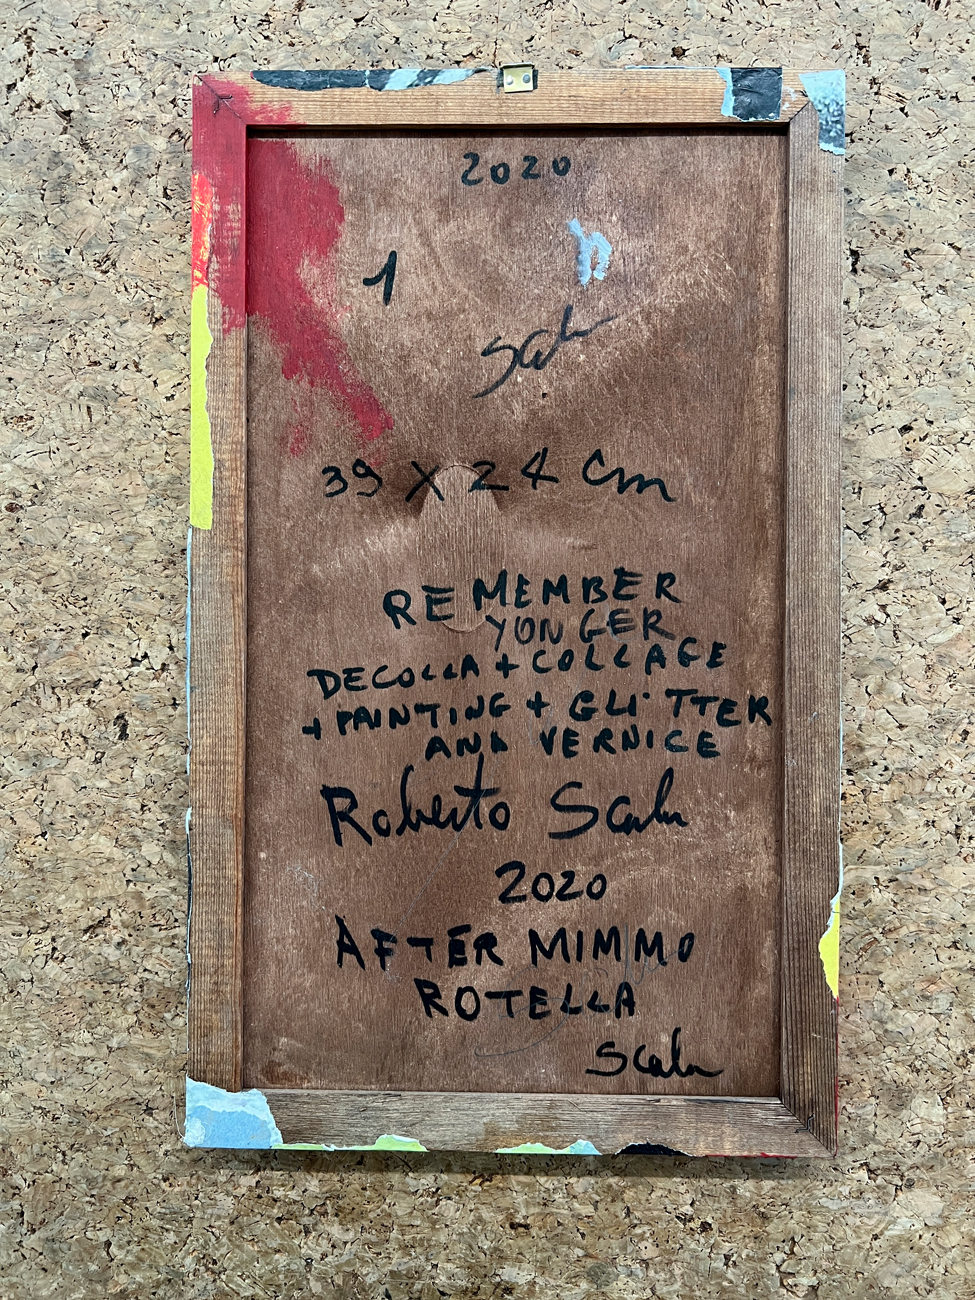 2020
1
Scala
39 X 24 Cm
REMEMBER
YONGER
DECOLLA + COLLAGE
+ PAINTING + GLITTER
AND VERNICE
Roberto Scala
2020
AFTER MIMMO
ROTELLA
Scala